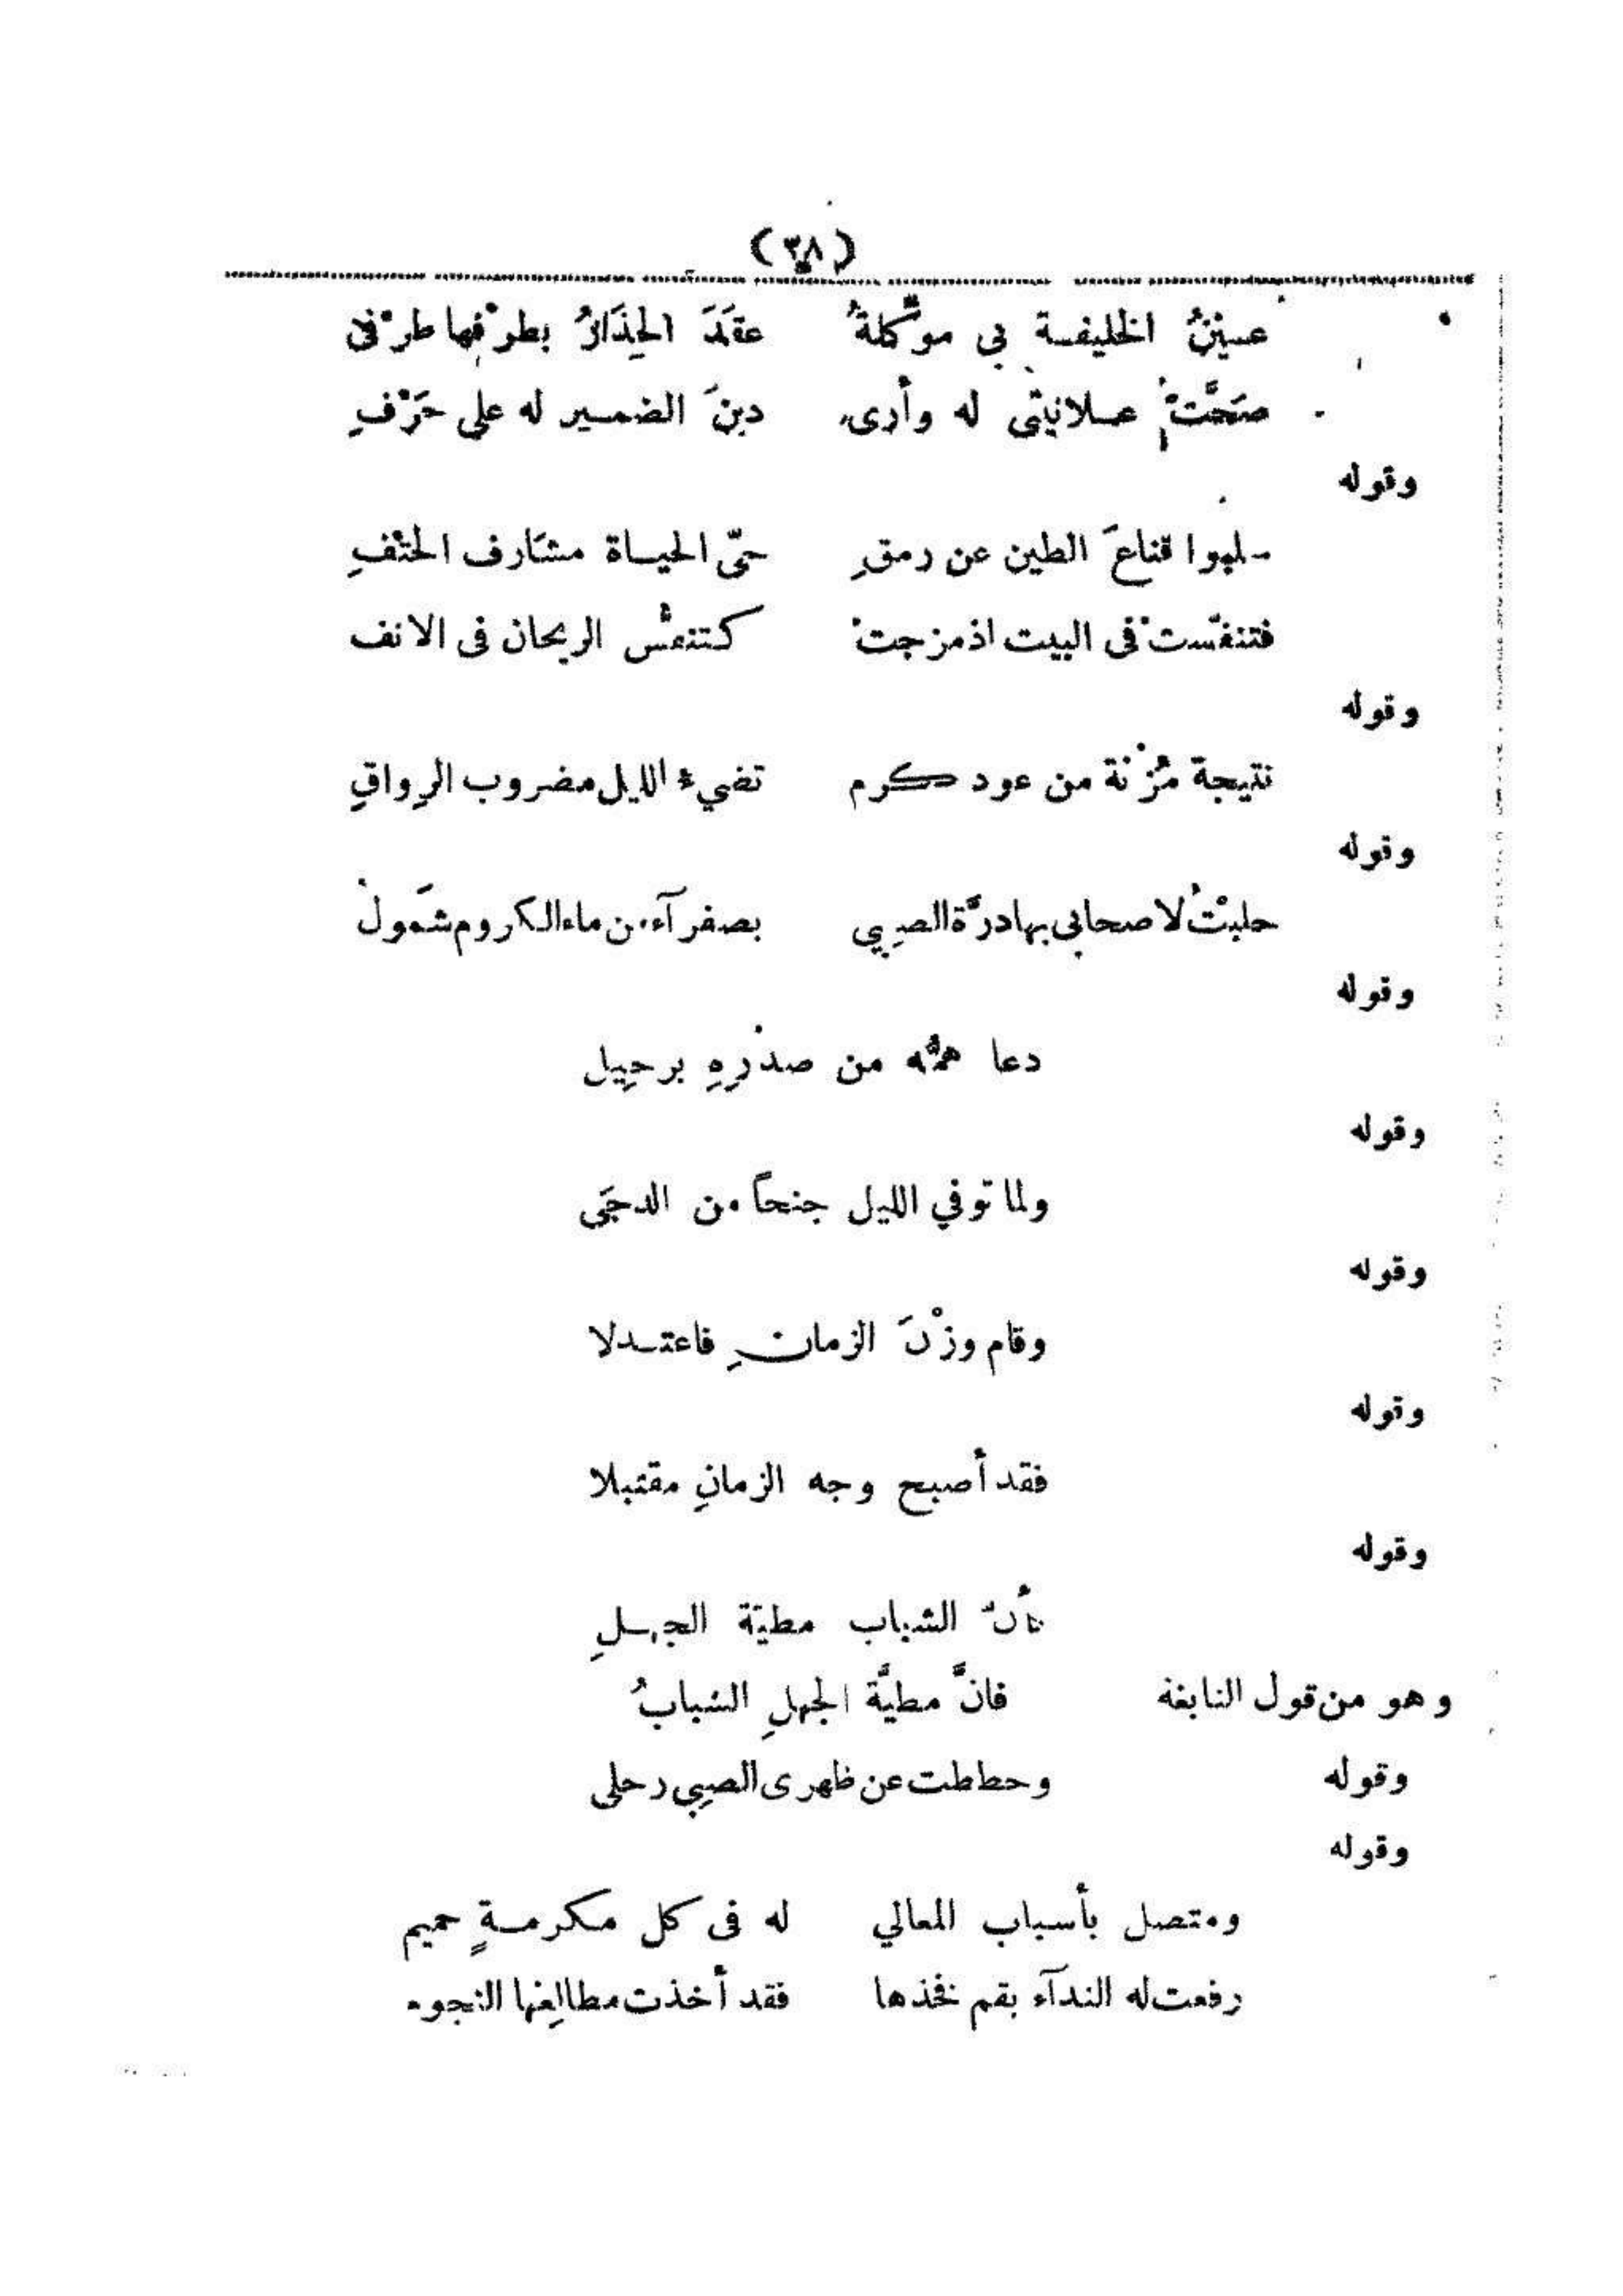 (٣٨)
عينُ الخليفة بي موكَّلةُ عقَدَ الحِذَارُ بطرْفها طرْفى
صَحَّتْ علانيتى له وأرى دينَ الضمير له على حَرْفِ
وقوله
سلبوا قناعَ الطين عن رمقِ حىّ الحياة مشَارف الحتْفِ
فتنفّستْ فى البيت اذ مزجتْ كتنفُّس الريحان فى الانف
وقوله
نتيجة مُزْنة من عود كرم تضيء الليل مضروب الرِواقِ
وقوله
حلبْتُ لاصحابى بها درَّة الصِبي بصفرآء من ماء الكروم شَمول
وقوله
دعا همُّه من صدْرِهِ برحِيل
وقوله
ولما توفي الليل جنحاً من الدجَى
وقوله
وقام وزْنَ الزمانِ فاعتدلا
وقوله
فقد أصبح وجه الزمانِ مقتبلا
وقوله
كأنّ الشباب مطيّة الجهلِ
وهو من قول النابغة فانَّ مطيَّة الجهلِ الشبابُ
وقوله وحططت عن ظهرى الصِبي رحلى
وقوله
ومتصل بأسباب المعالي له فى كل مكرمةٍ حميم
رفعت له الندآء بقم فخذها فقد أخذت مطالِعَها النجوم